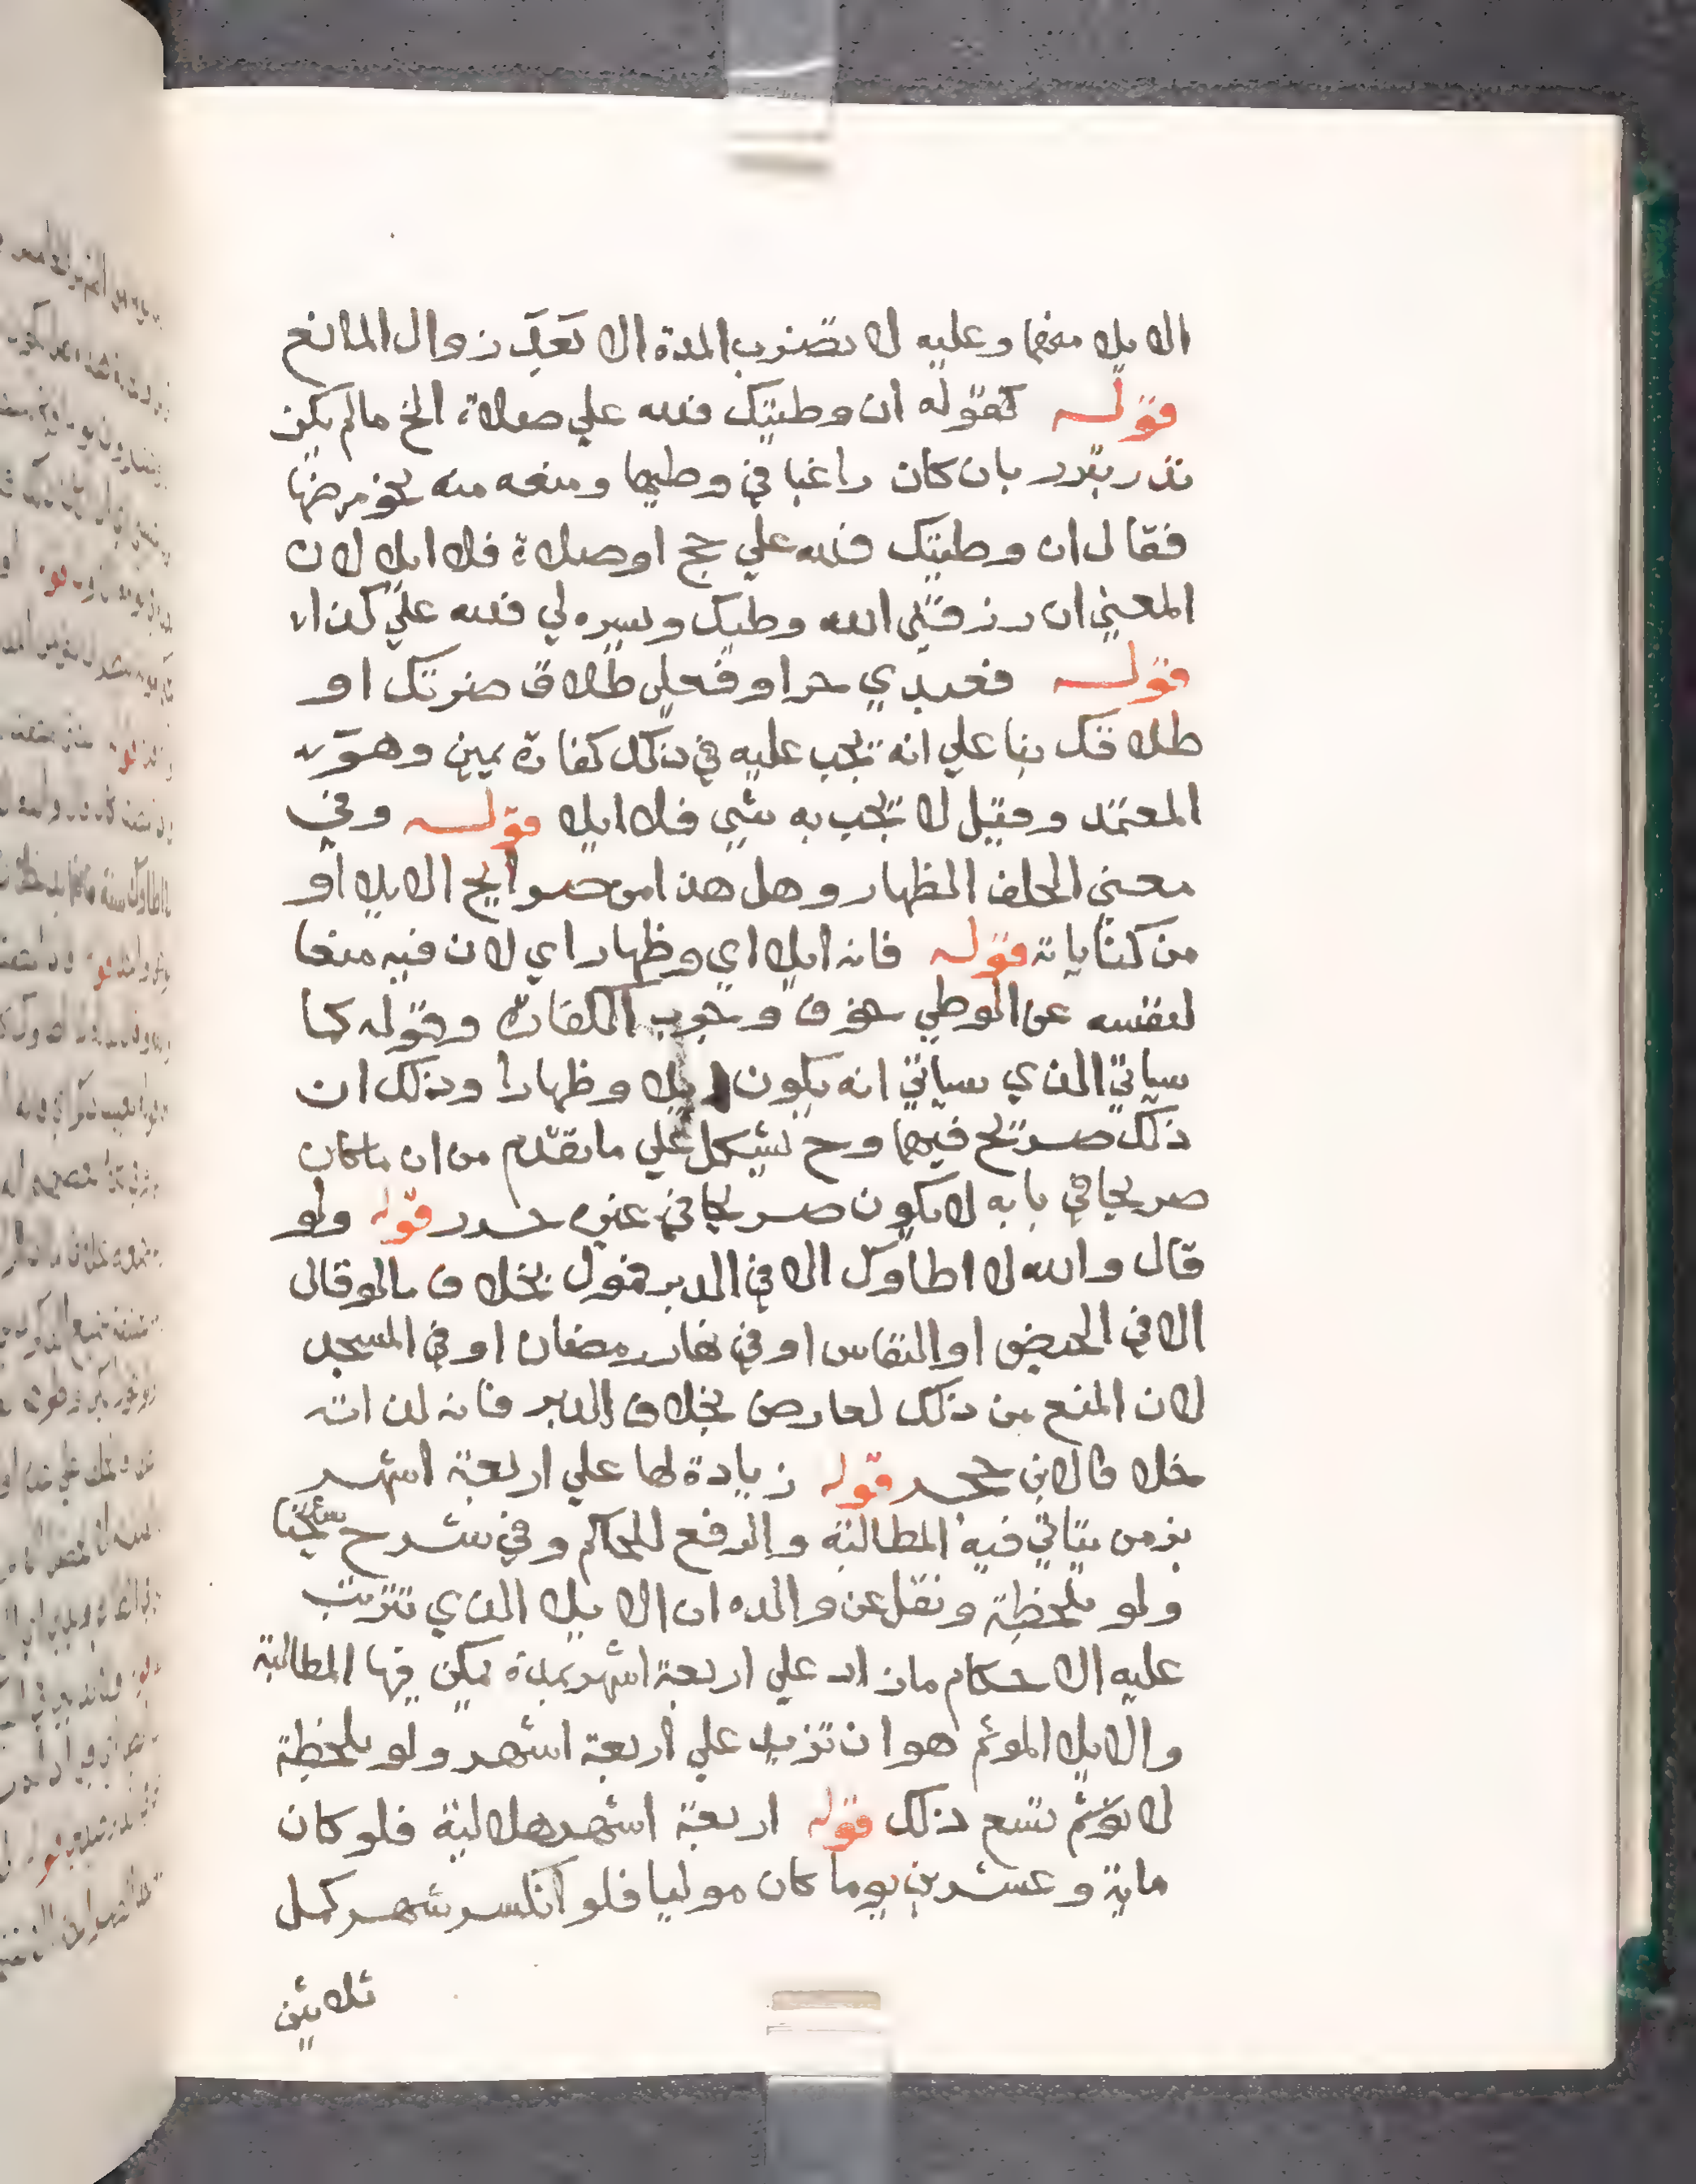 الايلا منهما وعليه لا تضرب المدة الا بَعدَ زوال المانع
قوله كقوله ان وطيتك فلله علي صلاة الخ مالم يكن
نذر تبرر بان كان راغبا في وطيها ومنعه منه نحو مرضها
فقال ان وطيتك فلله علي حج او صلاة فلا ايلا لان
المعني ان رزقني الله وطيك ويسره لي فلله علي كذا
قوله فعبدي حر او فعلي طلاق ضرتك او
طلاقك بنا علي انه تجب عليه في ذلك كفارة يمين وهو
المعتمد وقيل لا تجب به شي فلا ايلا قوله وفي
معني الحلف الظهار وهل هذا من صرايح الايلا او
من كناياته قوله فانه ايلا اي وظهار اي لان فيه منعا
لنفسه عن الوطي خوف وجوب الكفارة وقوله كما
سياتي الذي سياتي انه يكون ايلا وظهارا وذلك ان
ذلك صريح فيهما وح يشكل علي ما تقدم من ان ما كان
صريحا في بابه لا يكون صريحا في غيره حرر قوله ولو
قال والله لا اطاوك الا في الدبر فمول بخلاف ما لو قال
الا في الحيض او النفاس او في نهار رمضان او في المسجد
لان المنع من ذلك لعارض بخلاف الدبر فانه لذاته
خلا قال ابن حجر قوله زيادة لها علي اربعة اشهر
بزمن يتاتي فيه المطالبة والرفع للحاكم وفي شرح شيخنا
ولو بلحظة ونقل عن والده ان الايلا الذي تترتب
عليه الاحكام ما زاد علي اربعة اشهر بمدة يمكن فيها المطالبة
والايلا الموثم هو ان تزيد علي اربعة اشهر ولو بلحظة
لا تسع ذلك قوله اربعة اشهر هلالية فلو كان
ماية وعشرين يوما كان موليا فلو انكسر شهر كمل
ثلاثين